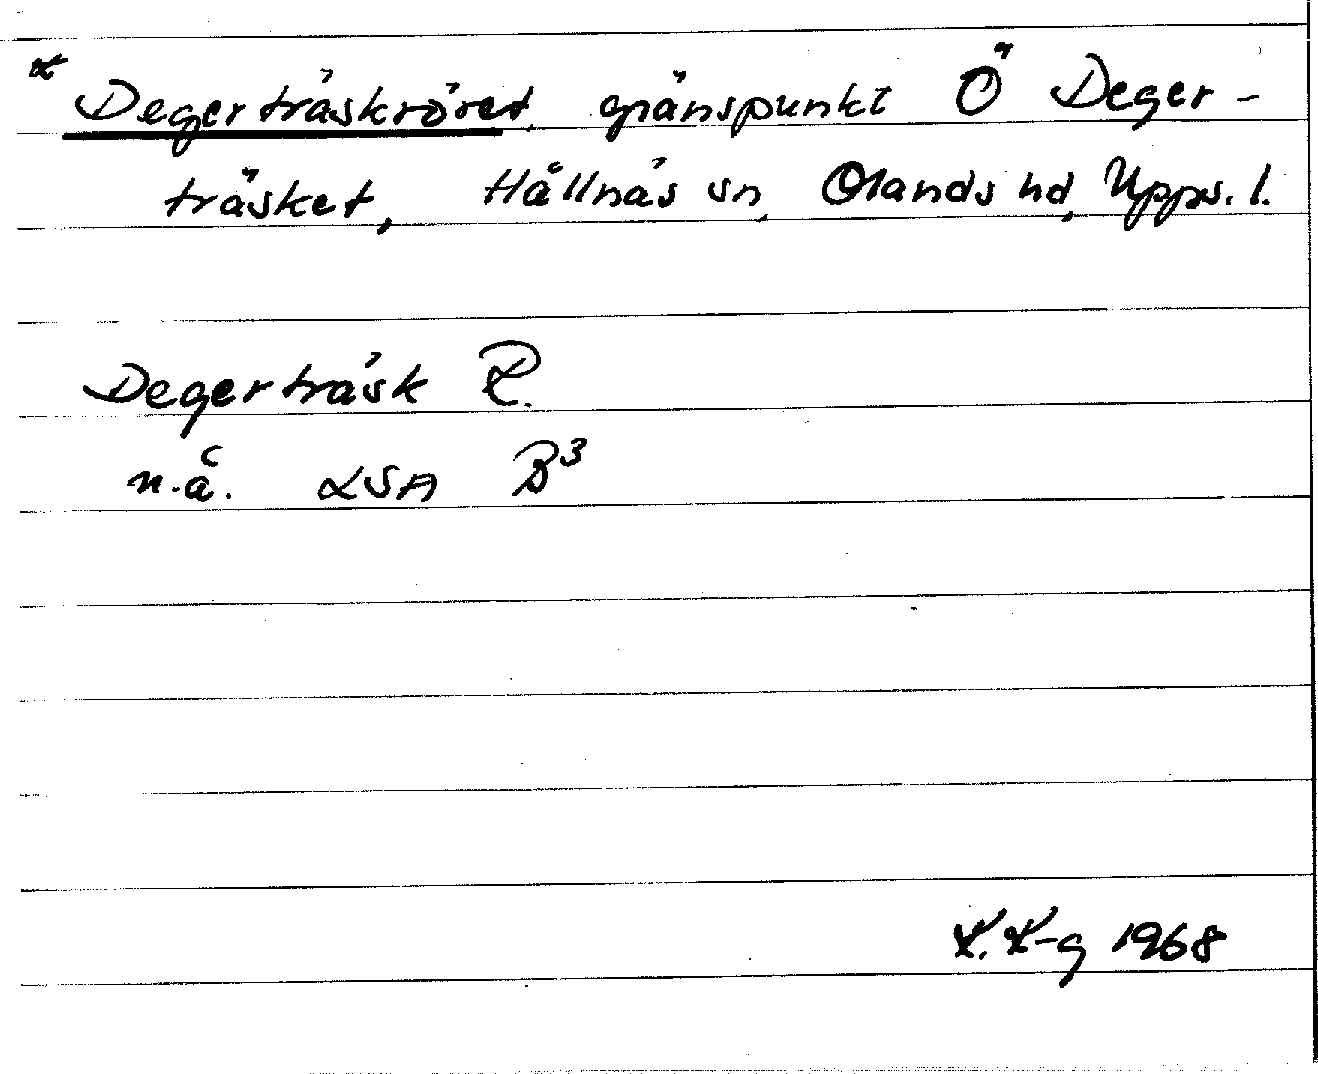 × Degerträskröret, gränspunkt Ö Deger-
träsket, Hållnäs sn, Olands hd, Upps. l.
Degerträsk R.
n.å. LSA B³
1968